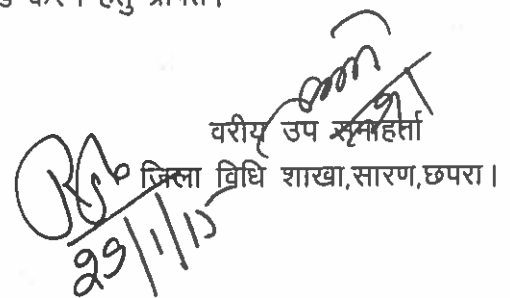 करने हेतु प्रेषित।
वरीय उप समाहर्ता
जिला विधि शाखा,सारण,छपरा।
29/1/15